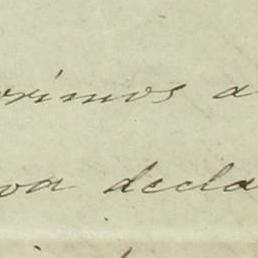 orimos a
va decla